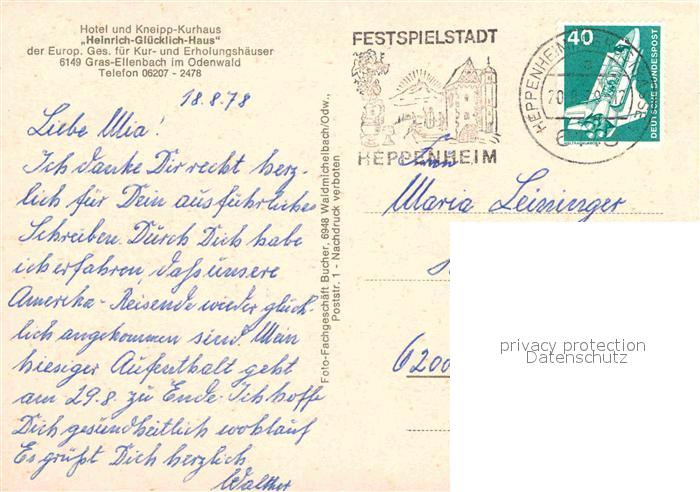 Hotel und Kneipp-Kurhaus
„Heinrich-Glücklich-Haus"
der Europ. Ges. für Kur- und Erholungshäuser
6149 Gras-Ellenbach im Odenwald
Telefon 06207 - 2478
18.8.78
Liebe Mia!
Ich danke Dir recht herz-
lich für Dein ausführliches
Schreiben. Durch Dich habe
ich erfahren, daß unsere
Amerika-Reisende wieder glück-
lich angekommen sind. Mein
hiesiger Aufenthalt geht
am 29.8. zu Ende. Ich hoffe
Dich gesundheitlich wohlauf
Es grüßt Dich herzlich
Walther
Foto-Fachgeschäft Bucher, 6948 Waldmichelbach/Odw.,
Poststr. 1 - Nachdruck verboten
FESTSPIELSTADT
HEPPENHEIM
HEPPENHEIM
40
DEUTSCHE BUNDESPOST
Frau
Maria Leininger
6200
privacy protection
Datenschutz